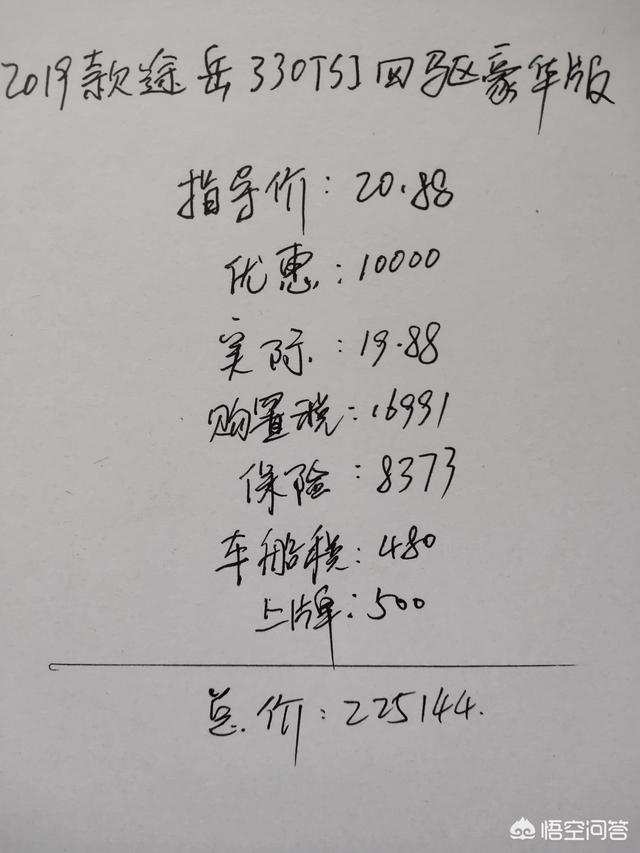 2019款途岳330TSI四驱豪华版
指导价：20.88
优惠：10000
实际：19.88
购置税：16991
保险：8373
车船税：480
上牌：500
总价：225144.
悟空问答